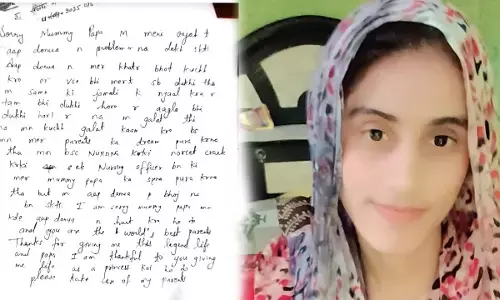 Sorry Mummy Papa M meri
aap donua n problem m na dekh skti
Aap donua n mer khatr bhot kuchh
kro or vse bhi mere sb dukhi
m samo ki jamoli k njaal
tam bhi dukhi horo r aagla bhi
dukhi hori r na m galat thi
na mn kuchh galat kaam kro bs
mn mer parents ka dream pura krne
tha mn bsc Nursing krke norcet crack
krke ek Nursing officer bn ki
mer mummy papa ka spna pura krna
tha but m aap donua p bhoj na
bn skti I am sorry mummy papa mn
kde aap donua n hurt kro ho to
and you are the world's best parents
Thanks for giving me this legend life
and papa I am thankful to you giving
me life as a princess koi
please take care of my parents